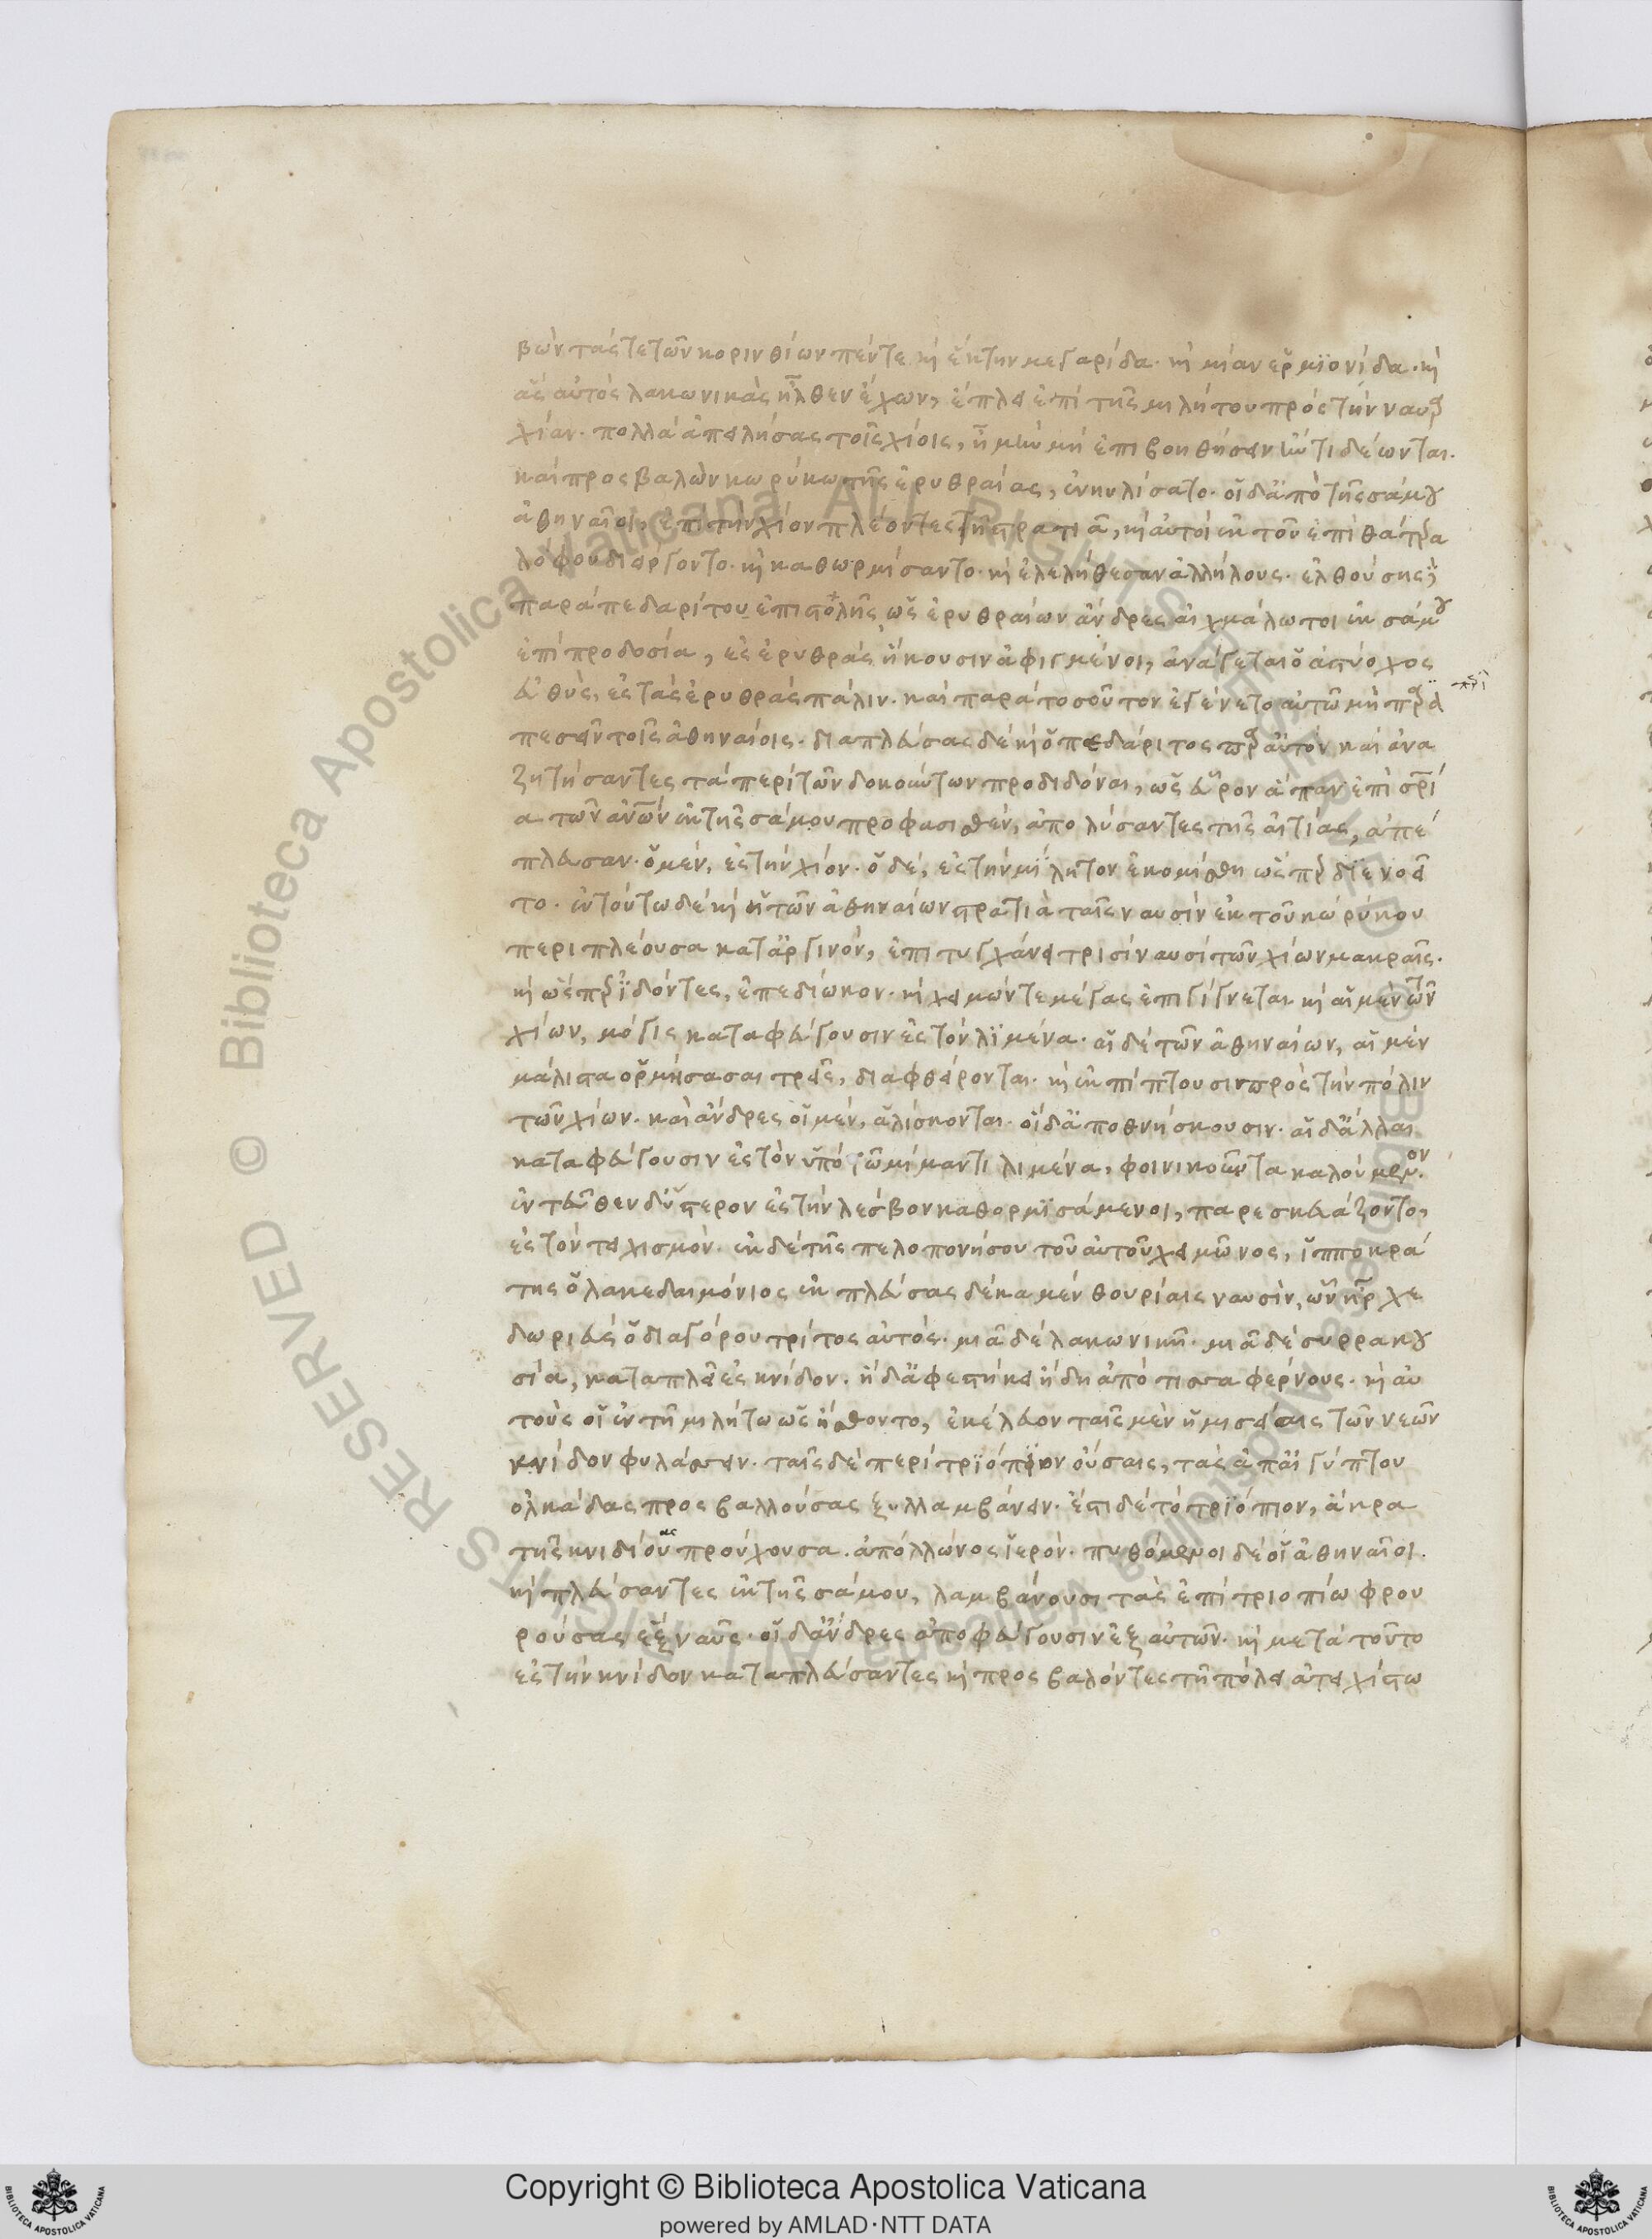 βὼν τάς τε τῶν κορινθίων πέντε καὶ ἕκτην μεγαρίδα· καὶ μίαν ἑρμϊονίδα· καὶ
ἃς αὐτὸς λακωνικὰς ἦλθεν ἔχων, ἔπλει ἐπὶ τῆς μιλήτου πρὸς τὴν ναυαρ
χίαν· πολλὰ ἀπειλήσας τοῖς χίοις, ἦ μὴν μὴ ἐπιβοηθήσειν ἤν τι δέωνται·
καὶ προσβαλὼν κωρύκω τῆς ἐρυθραίας, ἐνηυλίσατο· οἱ δ' ἀπὸ τῆς σάμου
ἀθηναῖοι, ἐπὶ τὴν χίον πλέοντες τῆ στρατιᾶ, καὶ αὐτοὶ ἐκ τοῦ ἐπὶ θάτερα
λόφου διείργοντο· καὶ καθωρμίσαντο· καὶ ἐλελήθεσαν ἀλλήλους· ἐλθούσης δὲ
παρὰ πεδαρίτου ἐπιστολῆς ὡς ἐρυθραίων ἄνδρες αἰχμάλωτοι ἐκ σάμου
ἐπὶ προδοσία, ἐς ἐρυθρὰς ἥκουσιν ἀφιγμένοι, ἀνάγεται ὁ ἀστύοχος
εὐθὺς, ἐς τὰς ἐρυθρὰς πάλιν· καὶ παρὰ τοσοῦτον ἐγένετο αὐτῶ μὴ περι
πεσεῖν τοῖς ἀθηναίοις· διαπλεύσας δὲ καὶ ὁ πεδάριτος παρ' αὐτὸν καὶ ἀνα
ζητήσαντες τὰ περὶ τῶν δοκούντων προδιδόναι, ὡς εὗρον ἅπαν ἐπὶ σωτηρί
α τῶν ἀνθρώπων ἐκ τῆς σάμου προφασισθέν, ἀπολύσαντες τῆς αἰτίας, ἀπέ
πλευσαν· ὁ μέν, ἐς τὴν χίον· ὁ δέ, ἐς τὴν μίλητον ἐκομίσθη ὥσπερ διενοεῖ
το· ἐν τούτω δὲ καὶ ἡ τῶν ἀθηναίων στρατιὰ ταῖς ναυσὶν ἐκ τοῦ κωρύκου
περιπλέουσα κατ' ἄργινον, ἐπιτυγχάνει τρισὶν ναυσὶ τῶν χίων μακραῖς·
καὶ ὥσπερ ἰδόντες, ἐπεδίωκον· καὶ χειμών τε μέγας ἐπιγίγνεται καὶ αἱ μὲν τῶν
χίων, μόγις καταφεύγουσιν ἐς τὸν λϊμένα· αἱ δὲ τῶν ἀθηναίων, αἱ μὲν
μάλιστα ὁρμήσασαι τρεῖς, διαφθείρονται· καὶ ἐκπίπτουσιν πρὸς τὴν πόλιν
τῶν χίων· καὶ ἄνδρες οἱ μέν, ἁλίσκονται· οἱ δ' ἀποθνήσκουσιν· αἱ δ' ἄλλαι
καταφεύγουσιν ἐς τὸν ὑπὸ τῶ μίμαντι λιμένα, φοινικοῦντα καλούμενον·
ἐντεῦθεν δ' ὕστερον ἐς τὴν λέσβον καθορμϊσάμενοι, παρεσκευάζοντο,
ἐς τὸν τειχισμόν· ἐκ δὲ τῆς πελοπονήσου τοῦ αὐτοῦ χειμῶνος, ἱπποκρά
της ὁ λακεδαιμόνιος ἐκπλεύσας δέκα μὲν θουρίαις ναυσὶν, ὧν ἦρχε
δωριεὺς ὁ διαγόρου τρίτος αὐτός· μιᾶ δὲ λακωνικῆ· μιᾶ δὲ συρρακου
σία, καταπλεῖ ἐς κνίδον· ἡ δ' ἀφεστήκει ἤδη ἀπὸ τισσαφέρνους· καὶ αὐ
τοὺς οἱ ἐν τῆ μιλήτω ὡς ἤσθοντο, ἐκέλευον ταῖς μὲν ἡμισείαις τῶν νεῶν
κνίδον φυλάσσειν· ταῖς δὲ περὶ τρϊόπϊον οὔσαις, τὰς ἀπ' αἰγύπτου
ὁλκάδας προσβαλλούσας ξυλλαμβάνειν· ἔστι δὲ τὸ τρϊόπιον, ἄκρα
τῆς κνιδίας προύχουσα· ἀπόλλωνος ἱερόν· πυθόμενοι δὲ οἱ ἀθηναῖοι·
καὶ πλεύσαντες ἐκ τῆς σάμου, λαμβάνουσι τὰς ἐπὶ τριοπίω φρου
ρούσας ἓξ ναῦς· οἱ δ' ἄνδρες ἀποφεύγουσιν ἐξ αὐτῶν· καὶ μετὰ τοῦτο
ἐς τὴν κνίδον καταπλεύσαντες καὶ προσβαλόντες τῆ πόλει ἀτειχίστω
Copyright © Biblioteca Apostolica Vaticana
powered by AMLAD·NTT DATA